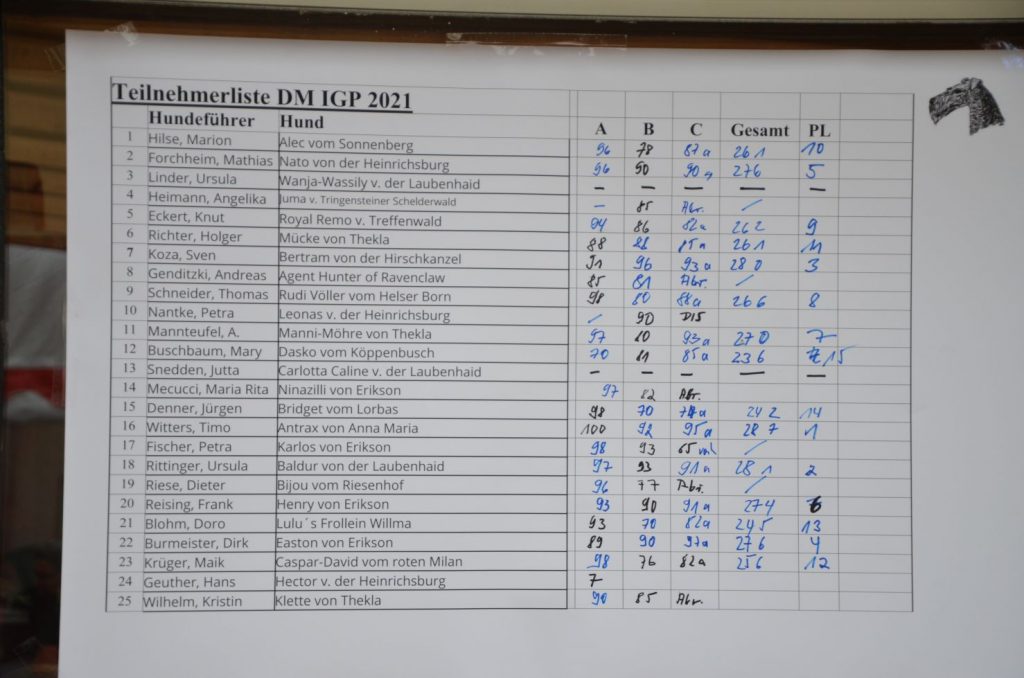 Teilnehmerliste DM IGP 2021
Hundeführer Hund A B C Gesamt PL
1 Hilse, Marion Alec vom Sonnenberg 96 78 87a 261 10
2 Forchheim, Mathias Nato von der Heinrichsburg 96 90 90a 276 5
3 Linder, Ursula Wanja-Wassily v. der Laubenhaid — — — — —
4 Heimann, Angelika Juma v. Tringensteiner Schelderwald – 85 Abr. /
5 Eckert, Knut Royal Remo v. Treffenwald 94 86 82a 262 9
6 Richter, Holger Mücke von Thekla 88 88 85a 261 11
7 Koza, Sven Bertram von der Hirschkanzel 91 96 93a 280 3
8 Genditzki, Andreas Agent Hunter of Ravenclaw 85 81 Abr. /
9 Schneider, Thomas Rudi Völler vom Helser Born 98 80 88a 266 8
10 Nantke, Petra Leonas v. der Heinrichsburg / 90 DIS
11 Mannteufel, A. Manni-Möhre von Thekla 97 80 93a 270 7
12 Buschbaum, Mary Dasko vom Köppenbusch 70 81 85a 236 15
13 Snedden, Jutta Carlotta Caline v. der Laubenhaid – – – — —
14 Mecucci, Maria Rita Ninazilli von Erikson 97 82 Abr.
15 Denner, Jürgen Bridget vom Lorbas 98 70 74a 242 14
16 Witters, Timo Antrax von Anna Maria 100 92 95a 287 1
17 Fischer, Petra Karlos von Erikson 98 93 65 /
18 Rittinger, Ursula Baldur von der Laubenhaid 97 93 91a 281 2
19 Riese, Dieter Bijou vom Riesenhof 96 77 Abr. /
20 Reising, Frank Henry von Erikson 93 90 91a 274 6
21 Blohm, Doro Lulu´s Frollein Willma 93 70 82a 245 13
22 Burmeister, Dirk Easton von Erikson 89 90 97a 276 4
23 Krüger, Maik Caspar-David vom roten Milan 98 76 82a 256 12
24 Geuther, Hans Hector v. der Heinrichsburg 7
25 Wilhelm, Kristin Klette von Thekla 90 85 Abr.